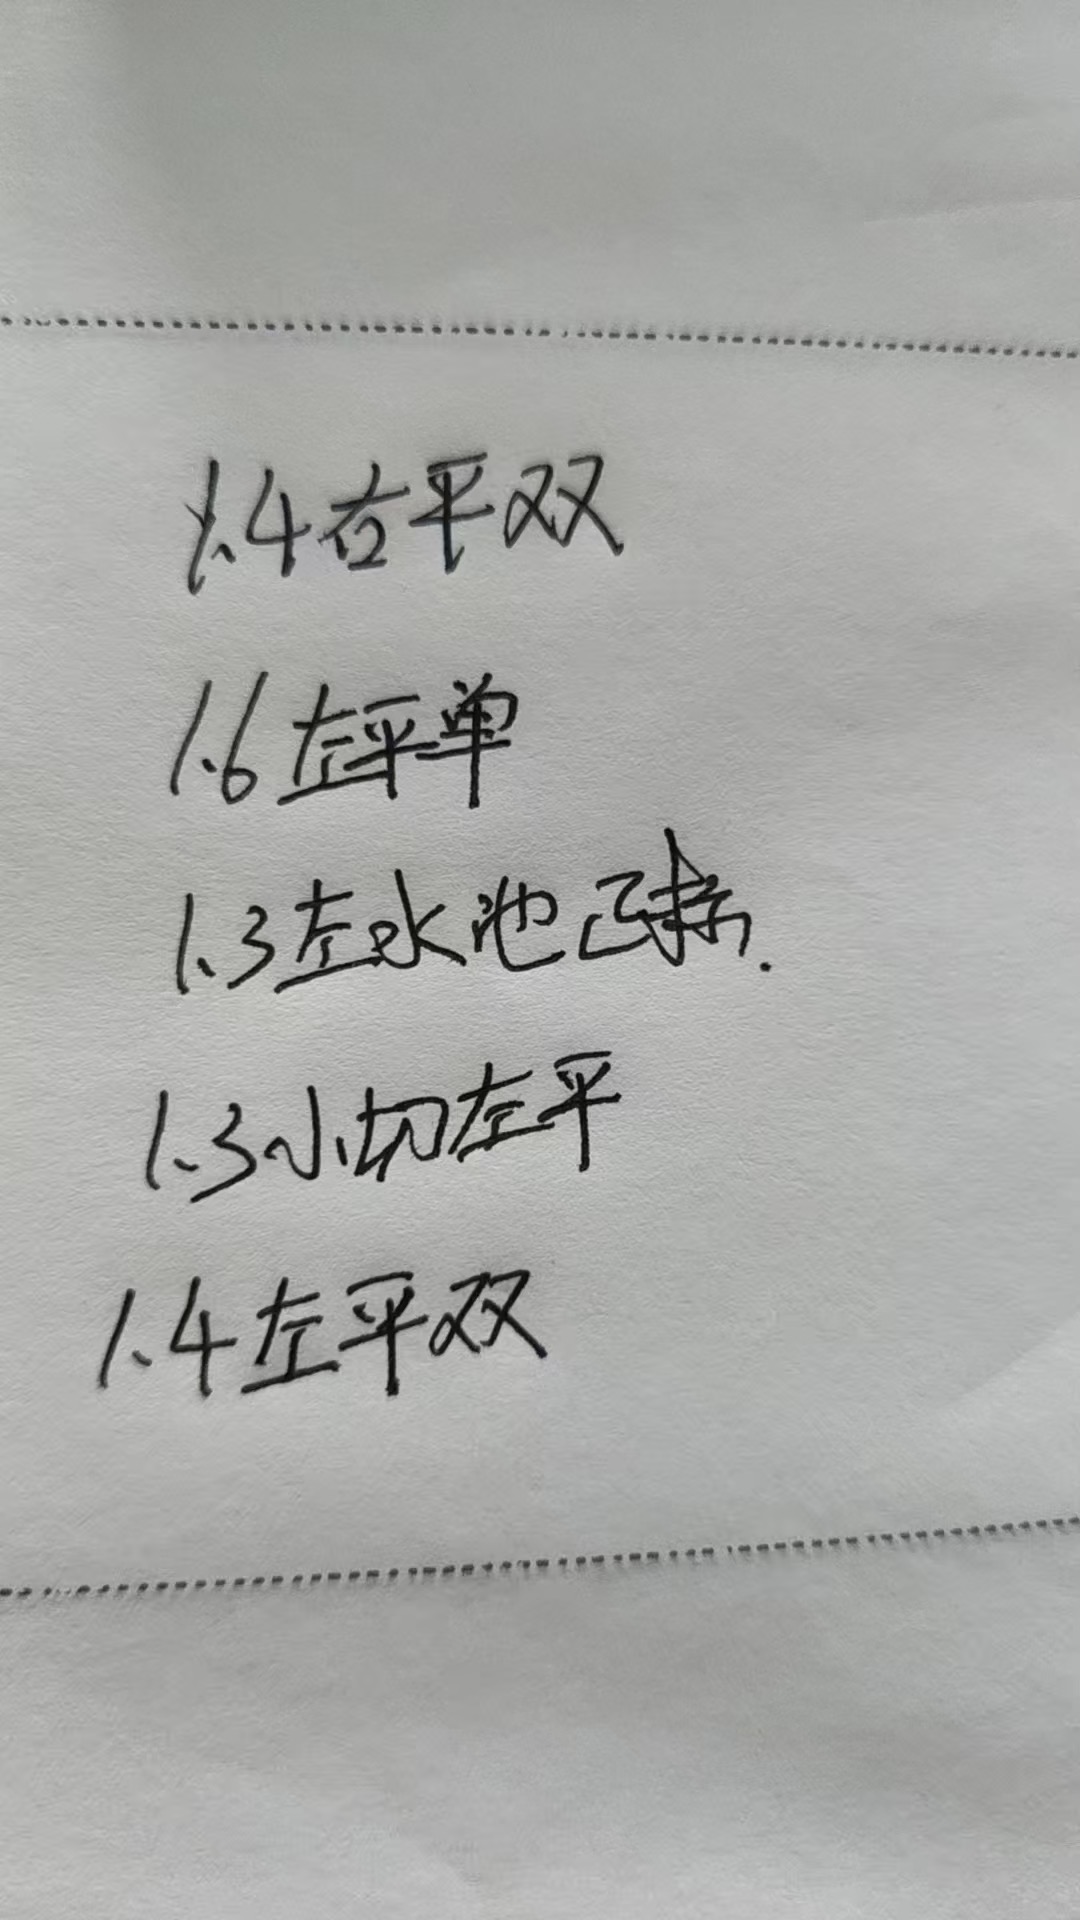 1.4右平双
1.6左平单
1.3左水池已
1.3小切左平
1.4左平双